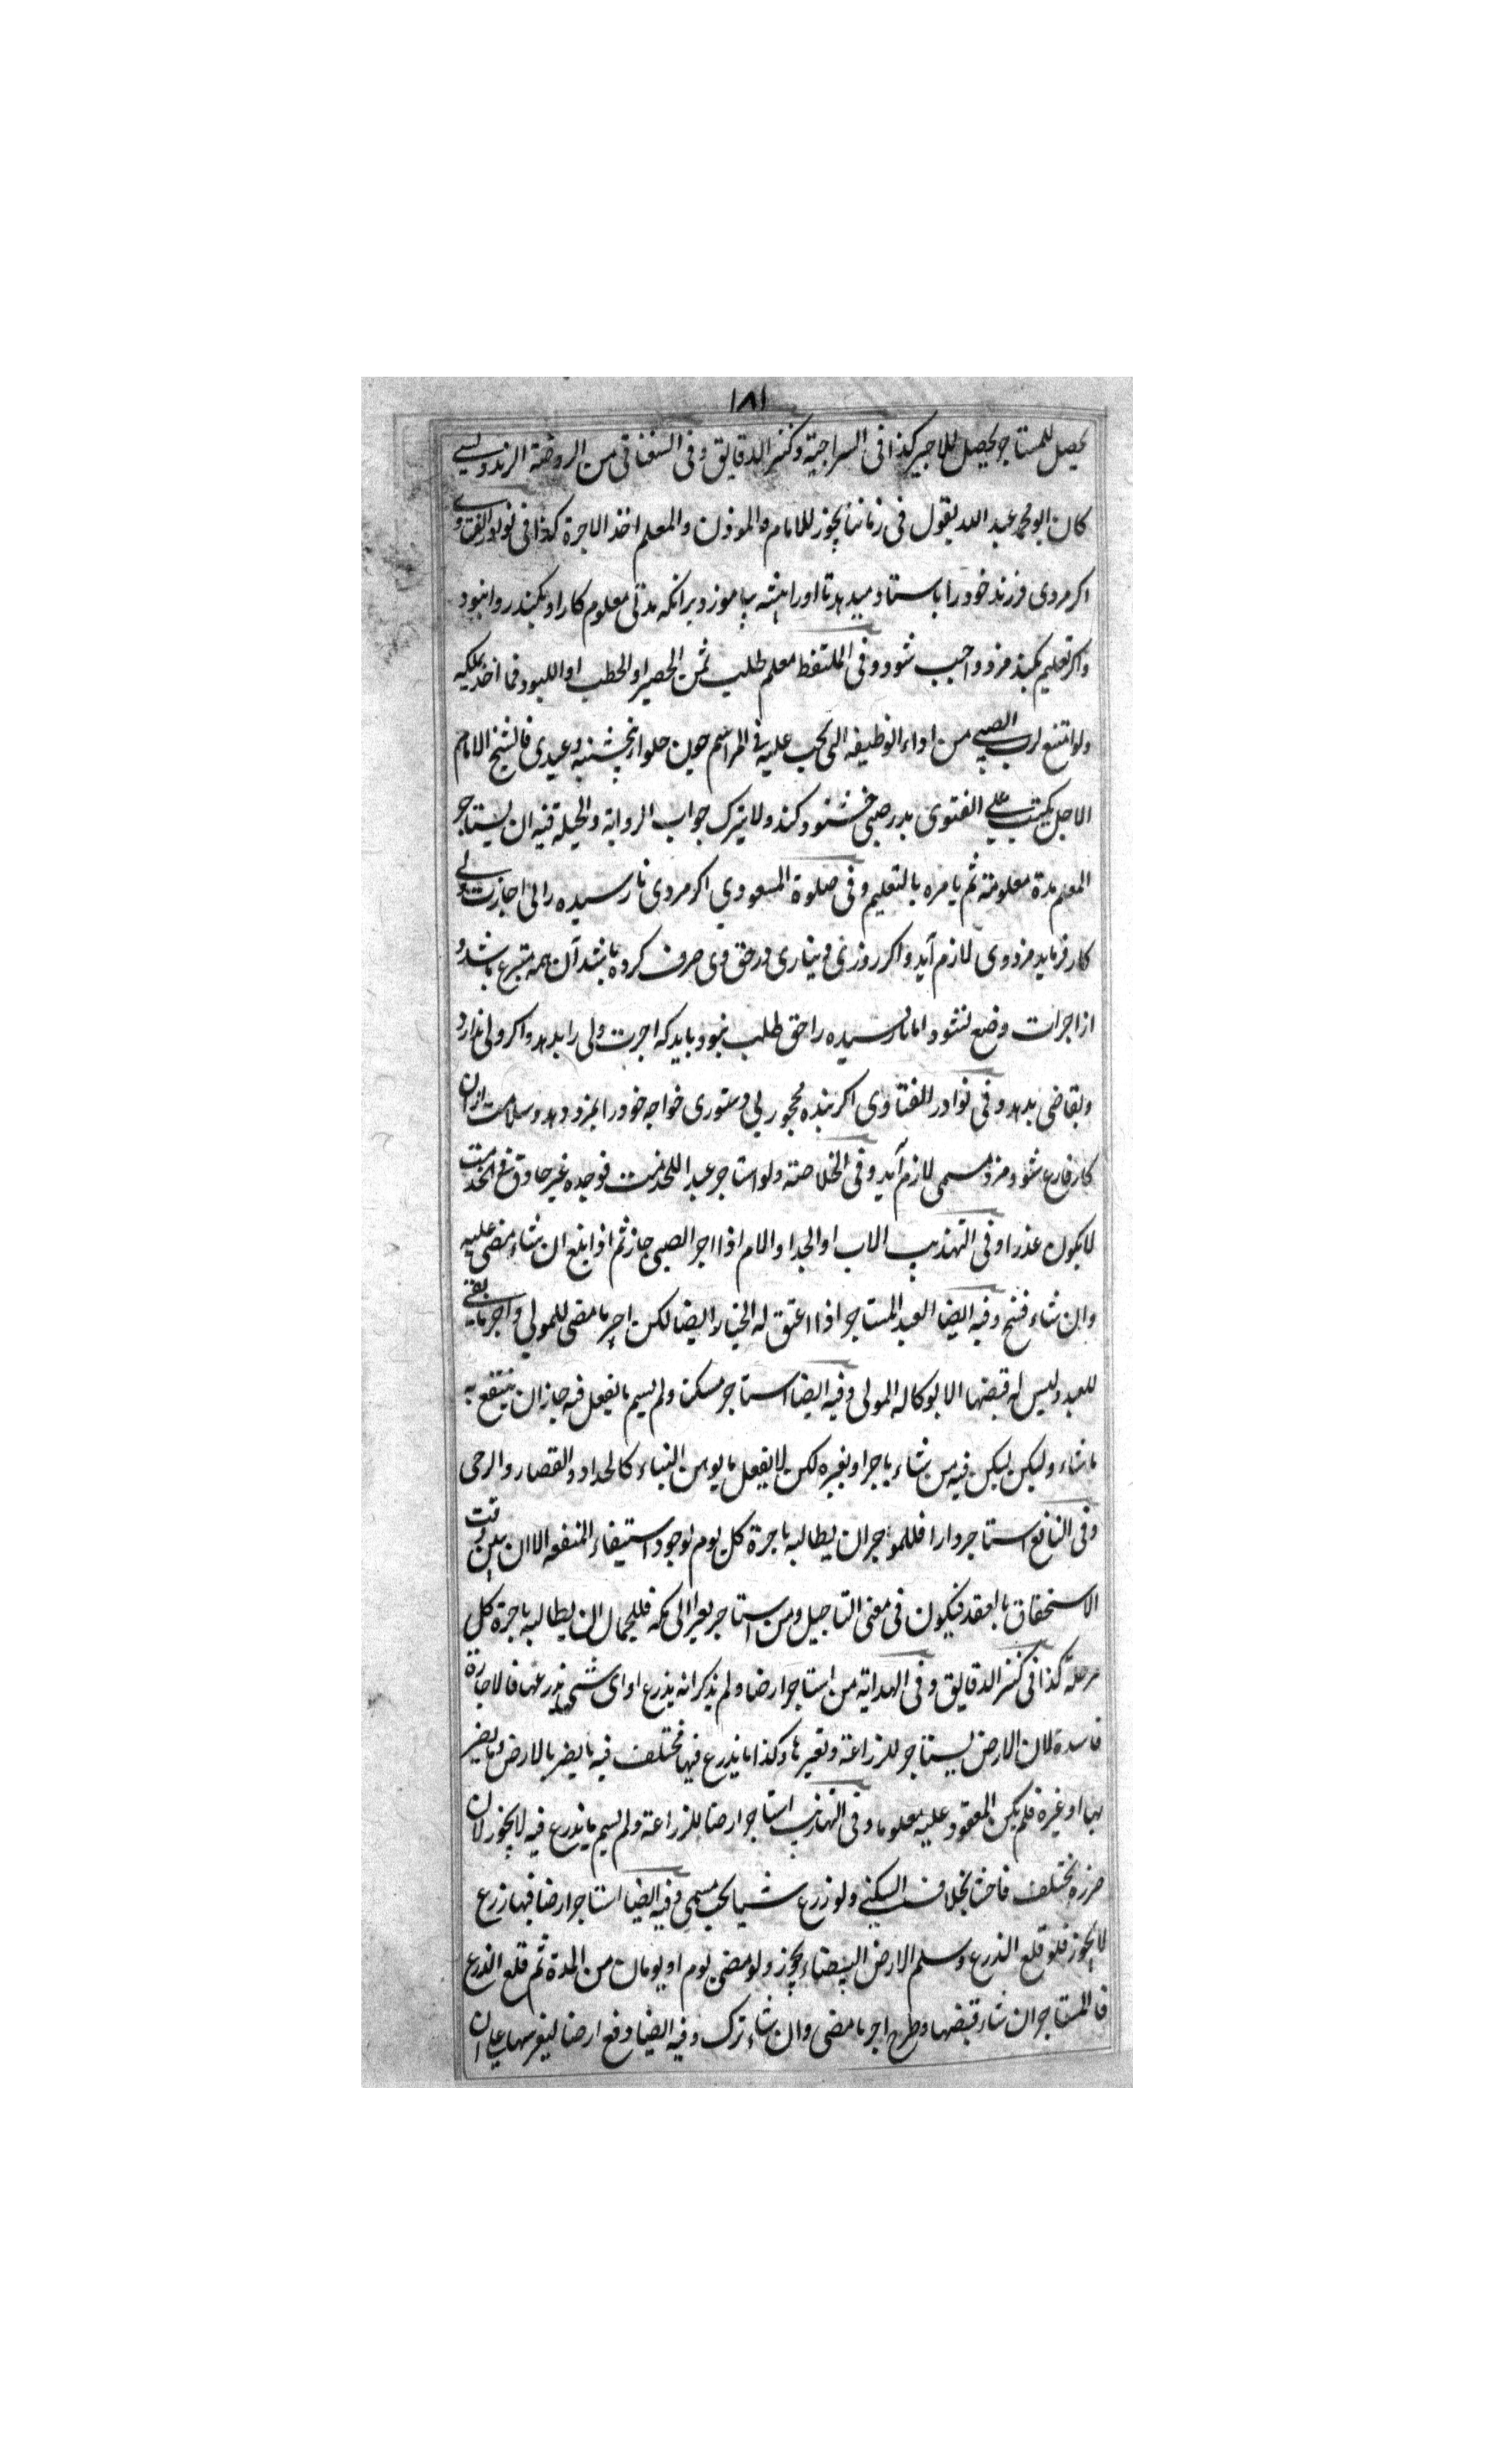 ١٨١
يحصل للمستاجر يحصل للاجير كذا فى السراجية وكنز الدقايق وفى السغناقى من الروضة الزندويسى
كان ابو محمد عبد الله يقول فى زماننا يجوز للامام والموذن والمعلم اخذ الاجرة كذا فى نوادر الفتاوى
اكر مردى فرزند خود را باستاد ميدهد تا اورا پيشه بياموزد برانكه مدتى معلوم كار او بكند روا نبود
واكر تعليم بكند مزد واجب شود وفى الملتقط معلم طلب ثمن الحصير او الحطب او اللبود فما اخذ يملكه
ولو امتنع اب الصبى من اداء الوظيفه التى تجب عليه فى المراسم چون حلوا پنجشنبه وعيدى فالشيخ الامام
الاجل يكتب على الفتوى پدر صبى خشنود كند ولا يترك جواب الرواية والحيلة فيه ان يستاجر
المعلم مدة معلومة ثم يامره بالتعليم وفى صلوة المسعودي اكر مردى نارسيده را بى اجازت ولى
كار فرمايد مزد وى لازم آيد واكر روزى دينارى در حق وى صرف كرده باشد آن همه متبرع باشد و
از اجرات وضع نشود اما نارسيده را حق طلب نبود بايد كه اجرت ولى را بدهد واكر ولى ندارد
وبقاضى بدهد وفى نوادر الفتاوى اكر بنده محجور بى دستورى خواجه خود را بمزد دهد وسلامت ازان
كار فارغ شود مزد مسمى لازم آيد وفى الخلاصة ولو استاجر عبدا للخدمت فوجده غير حاذق فى الخدمت
لايكون عذرا وفى التهذيب الاب او الجد او الام اذا اجر الصبى جاز ثم اذا بلغ ان شاء مضى عليه
وان شاء فسخ وفيه ايضا العبد المستاجر اذا اعتق له الخيار ايضا لكن اجر ما مضى للمولى واجر ما بقى
للعبد وليس له قبضها الا بوكالة المولى وفيه ايضا استاجر مسكنا ولم يسم ما يفعل فيه جاز ان ينتفع به
ما شاء وليكن ليكن فيه من شاء باجر او بغيره لكن لا يفعل ما يوهن البناء كالحداد والقصار والرحى
وفى النافع استاجر دارا فللموجر ان يطالبه باجرة كل يوم لوجود استيفاء المنفعه الا ان يبين وقت
الاستحقاق بالعقد فيكون فى معنى التاجيل ومن استاجر بعيرا الى مكه فللجمال ان يطالبه باجرة كل
مرحلة كذا فى كنز الدقايق وفى الهداية من استاجر ارضا ولم يذكر انه يذرع او اى شئ يذرعها فالاجارة
فاسدة لان الارض يستاجر للزراعة ولغيرها وكذا ما يذرع فيها مختلف فيه ما يضر بالارض وما يضر
بها او غيره فلم يكن المعقود عليه معلوما وفى التهذيب استاجر ارضا للزراعة ولم يسم ما يذرع فيه لا يجوز لان
ضرره يختلف فاحشا بخلاف السكنى ولو زرع شيئا يجب مسمى وفيه ايضا استاجر ارضا فيها زرع
لا يجوز فلو قلع الذرع وسلم الارض البيضاء يجوز ولو مضى يوم او يومان من المدة ثم قلع الذرع
فالمستاجر ان شاء قبضها وطرح اجر ما مضى وان شاء ترك وفيه ايضا دفع ارضا ليغرسها على ان